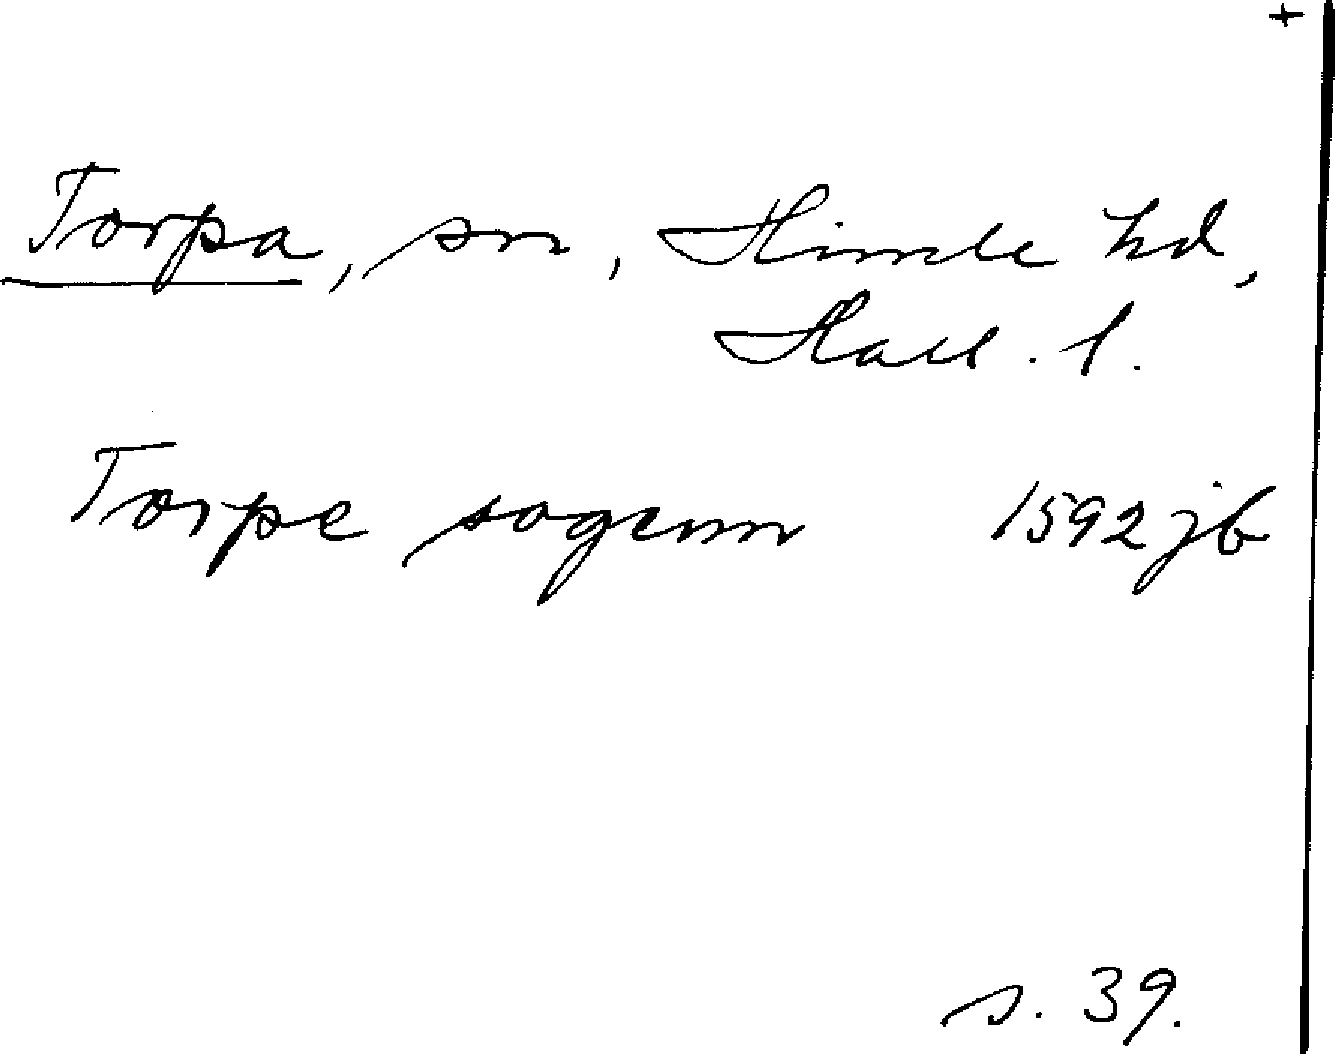 +
Torpa, sn, Himle hd,
Hall. l.
Torpe sogenn 1592 jb
s. 39.